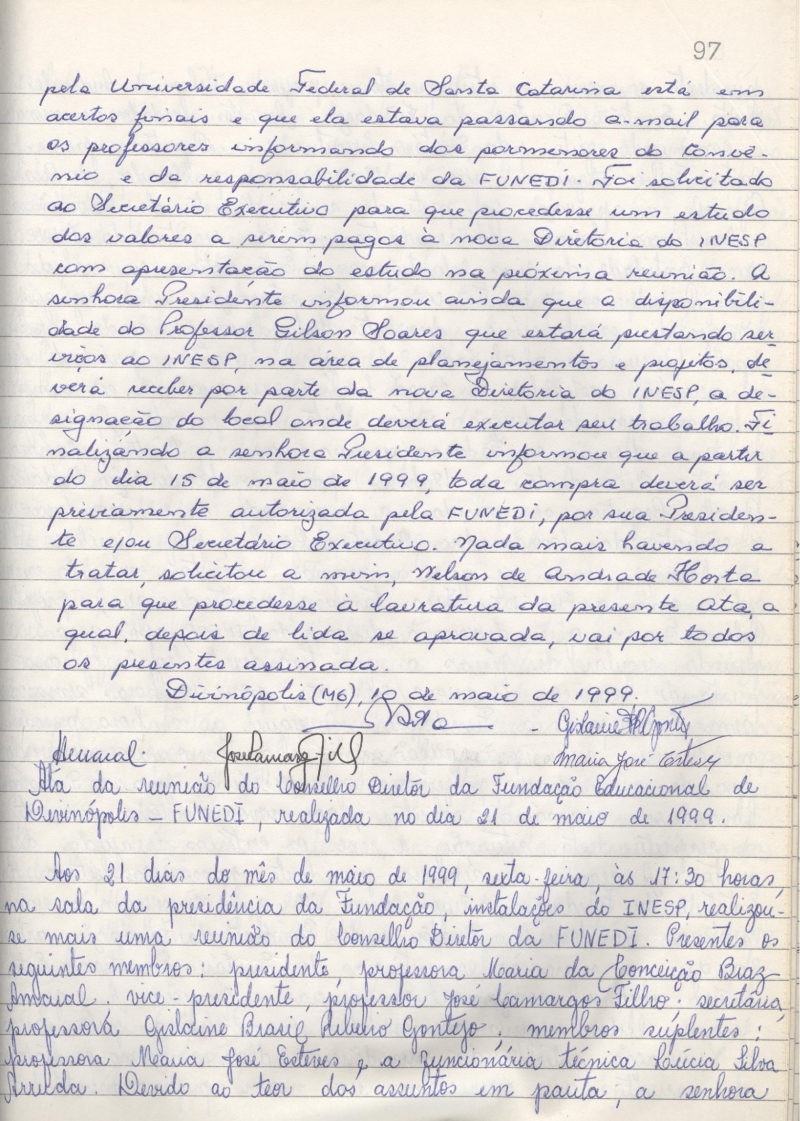 97
pela Universidade Federal de Santa Catarina está em
acertos finais e que ela estava passando a-mail para
os professores informando dos pormenores do Convê-
nio e da responsabilidade da FUNEDI. Foi solicitado
ao Secretário Executivo para que procedesse um estudo
dos valores a serem pagos à nova Diretoria do INESP
com apresentação do estudo na próxima reunião. A
senhora Presidente informou ainda que a disponibili-
dade do Professor Gilson Soares que estará prestando ser-
viços ao INESP, na área de planejamentos e projetos, de-
verá receber por parte da nova Diretoria do INESP, a de-
signação do local onde deverá executar seu trabalho. Fi-
nalizando a senhora Presidente informou que a partir
do dia 15 de maio de 1999, toda compra deverá ser
previamente autorizada pela FUNEDI, por sua Presiden-
te e/ou Secretário Executivo. Nada mais havendo a
tratar, solicitou a mim, Nelson de Andrade Horta
para que procedesse à lavratura da presente Ata, a
qual, depois de lida se aprovada, vai por todos
os presentes assinada.
Divinópolis (MG), 10 de maio de 1999.
Gislaine
Amaral. José Camargos Filho Maria José Esteves
Ata da reunião do Conselho Diretor da Fundação Educacional de
Divinópolis – FUNEDI, realizada no dia 21 de maio de 1999.
Aos 21 dias do mês de maio de 1999, sexta-feira, às 17:30 horas,
na sala da presidência da Fundação, instalações do INESP, realizou-
se mais uma reunião do Conselho Diretor da FUNEDI. Presentes os
seguintes membros: presidente, professora Maria da Conceição Braz
Amaral. vice-presidente, professor José Camargos Filho; secretária,
professora Gislaine Brasil Ribeiro Gontijo; membros suplentes:
professora Maria José Esteves e a funcionária técnica Lúcia Silva
Arruda. Devido ao teor dos assuntos em pauta, a senhora